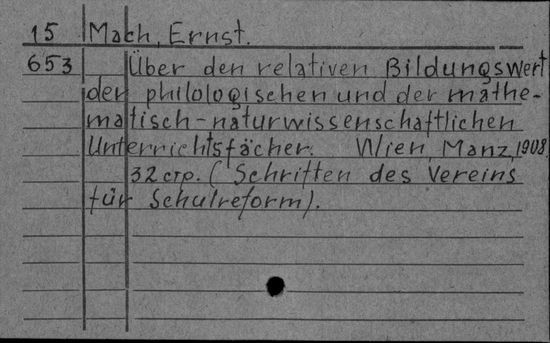 15 Mach, Ernst.
653 Über den relativen Bildungswert
der philologischen und der mathe-
matisch-naturwissenschaftlichen
Unterrichtsfächer. Wien, Manz, 1908.
32 стр. (Schriften des Vereins
für Schulreform).